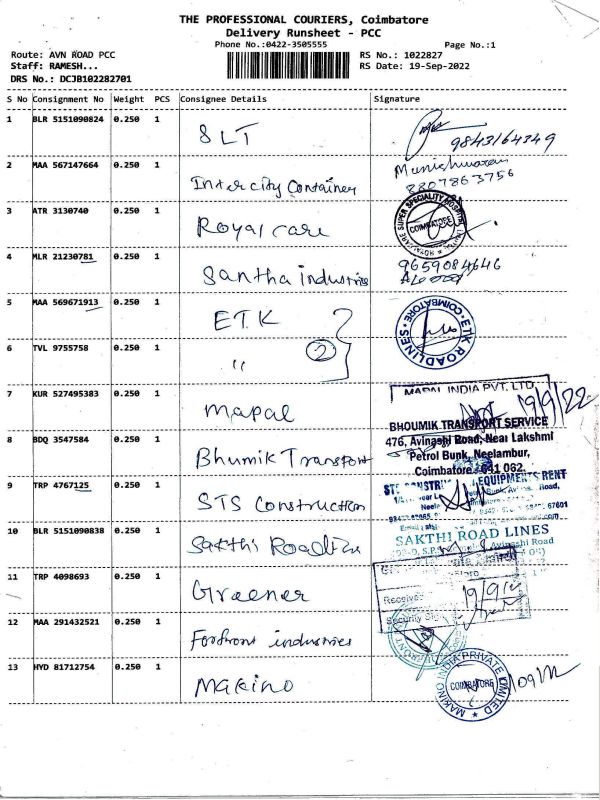 THE PROFESSIONAL COURIERS, Coimbatore
Delivery Runsheet - PCC
Phone No.:0422-3505555
Page No.:1
Route: AVN ROAD PCC
RS No.: 1022827
Staff: RAMESH...
RS Date: 19-Sep-2022
DRS No.: DCJB102282701
S No Consignment No Weight PCS Consignee Details Signature
1 BLR 5151090824 0.250 1 SLT 9843164349
2 MAA 567147664 0.250 1 Intercity Container Munishwaran
3 ATR 3130740 0.250 1 Royal care COIMBATORE
4 MLR 21230781 0.250 1 Santha industries 9659084646
5 MAA 569671913 0.250 1 ETK ETK ROADLINES COIMBATORE
6 TVL 9755758 0.250 1 " 2
7 KUR 527495383 0.250 1 Mapal MAPAL INDIA PVT. LTD 19/9/22
8 BDQ 3547584 0.250 1 Bhumik Transport BHOUMIK TRANSPORT SERVICE
476, Avinashi Road, Near Lakshmi
Petrol Bunk, Neelambur,
Coimbatore - 641 062.
9 TRP 4767125 0.250 1 STS Construction EQUIPMENTS RENT
10 BLR 5151090838 0.250 1 Sakthi Roadline SAKTHI ROAD LINES
11 TRP 4098693 0.250 1 Greener Received
Security
12 MAA 291432521 0.250 1 Forfront industries
13 HYD 81712754 0.250 1 Makino MAKINO INDIA PRIVATE LIMITED COIMBATORE